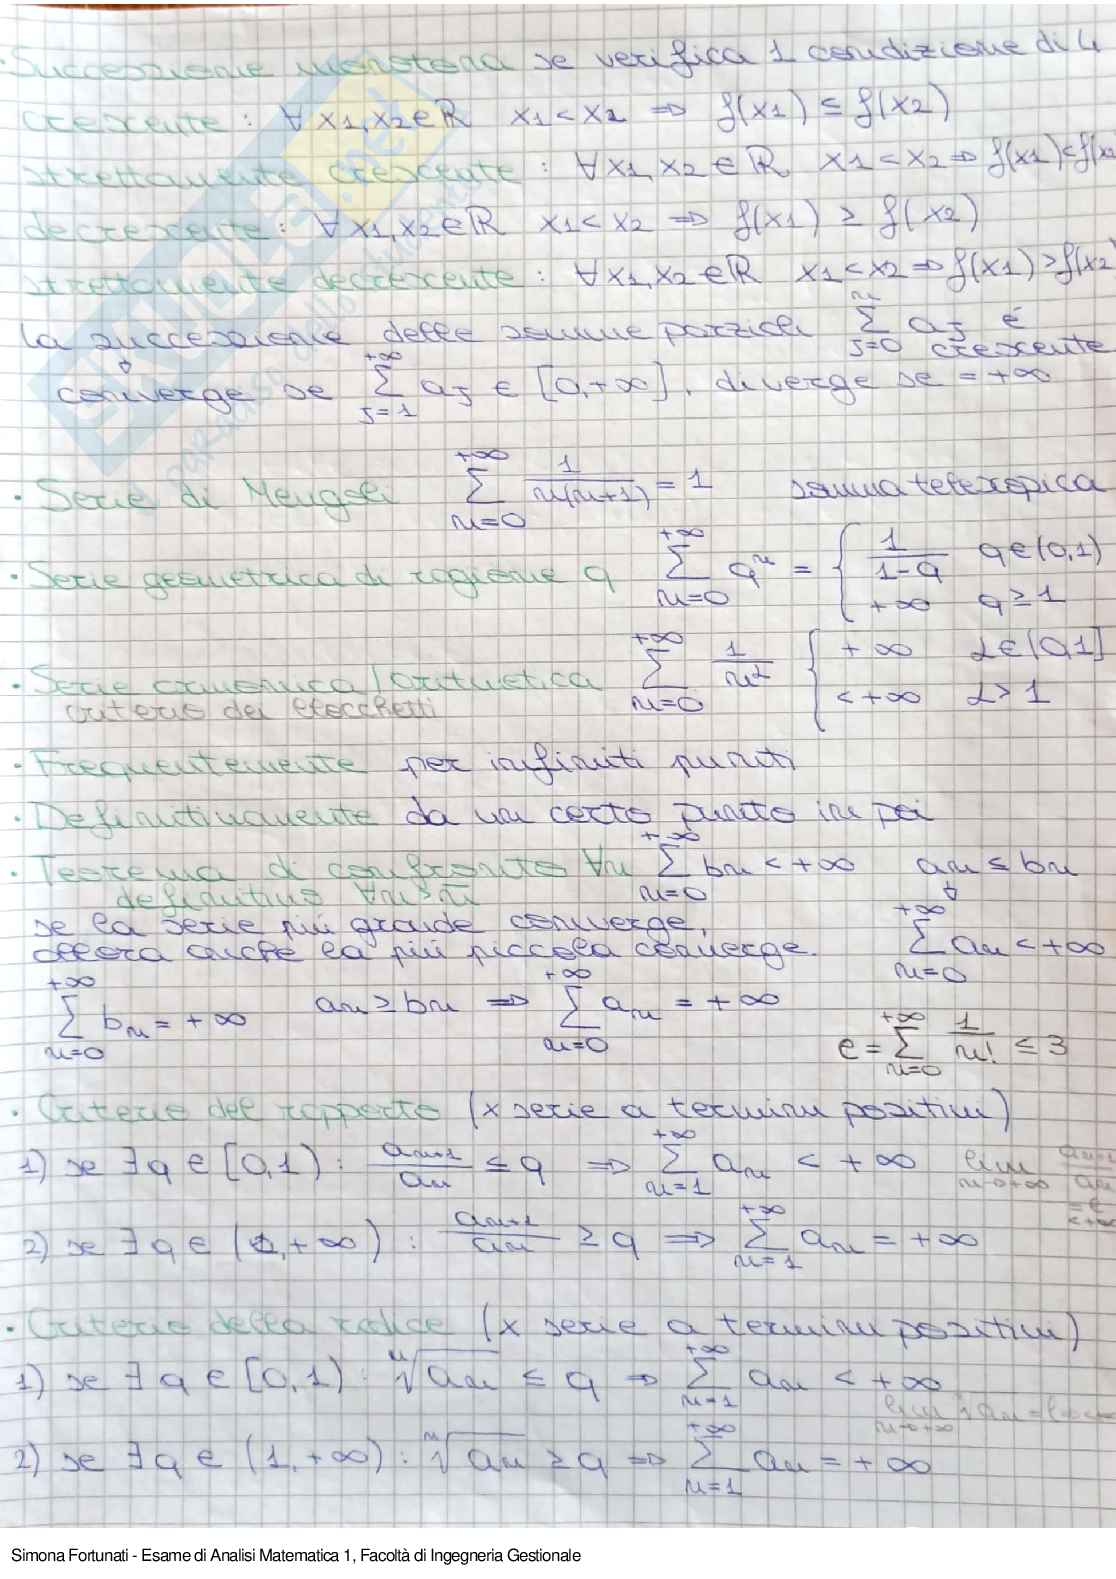 · Successione monotona se verifica 1 condizione di 4
crescente : ∀ x1, x2 ∈ ℝ x1 < x2 ⇒ f(x1) ≤ f(x2)
strettamente crescente : ∀ x1, x2 ∈ ℝ x1 < x2 ⇒ f(x1) < f(x2
decrescente : ∀ x1, x2 ∈ ℝ x1 < x2 ⇒ f(x1) ≥ f(x2)
strettamente decrescente : ∀ x1, x2 ∈ ℝ x1 < x2 ⇒ f(x1) > f(x2
la successione delle somme parziali ∑_{J=0}^{n} aJ é crescente
converge se ∑_{J=1}^{+∞} aJ ∈ [0,+∞], diverge se = +∞
· Serie di Mengoli ∑_{n=0}^{+∞} 1/n(n+1) = 1 somma telescopica
· Serie geometrica di ragione q ∑_{n=0}^{+∞} q^n = { 1/(1-q) q ∈ (0,1)
+∞ q ≥ 1
· Serie armonica/aritmetica ∑_{n=0}^{+∞} 1/n^α { +∞ α ∈ (0,1]
criterio dei blocchetti < +∞ α > 1
· Frequentemente per infiniti punti
· Definitivamente da un certo punto in poi
· Teorema di confronto ∀n ∑_{n=0}^{+∞} bn < +∞ an ≤ bn
definitivo ∀n > n̄
se la serie più grande converge,
allora anche la più piccola converge. ∑_{n=0}^{+∞} an < +∞
∑_{n=0}^{+∞} bn = +∞ an ≥ bn ⇒ ∑_{n=0}^{+∞} an = +∞
e = ∑_{n=0}^{+∞} 1/n! ≤ 3
· Criterio del rapporto (x serie a termini positivi)
1) se ∃ q ∈ [0,1) : an+1/an ≤ q ⇒ ∑_{n=1}^{+∞} an < +∞ lim_{n→+∞} an+1/an
2) se ∃ q ∈ (1,+∞) : an+1/an ≥ q ⇒ ∑_{n=1}^{+∞} an = +∞
· Criterio della radice (x serie a termini positivi)
1) se ∃ q ∈ [0,1) : ⁿ√an ≤ q ⇒ ∑_{n=1}^{+∞} an < +∞
2) se ∃ q ∈ (1,+∞) : ⁿ√an ≥ q ⇒ ∑_{n=1}^{+∞} an = +∞
Simona Fortunati - Esame di Analisi Matematica 1, Facoltà di Ingegneria Gestionale